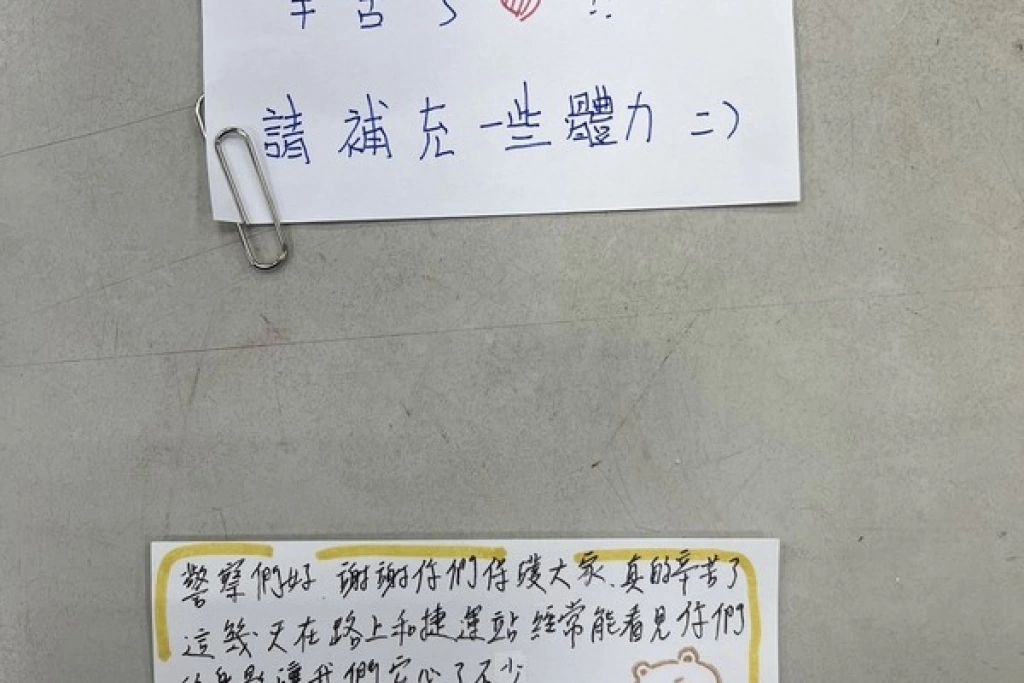 辛苦了 !!
請補充一些體力 =)
警察們好.謝謝你們保護大家.真的辛苦了
這幾天在路上和捷運站經常能看見你們
的身影讓我們安心了不少